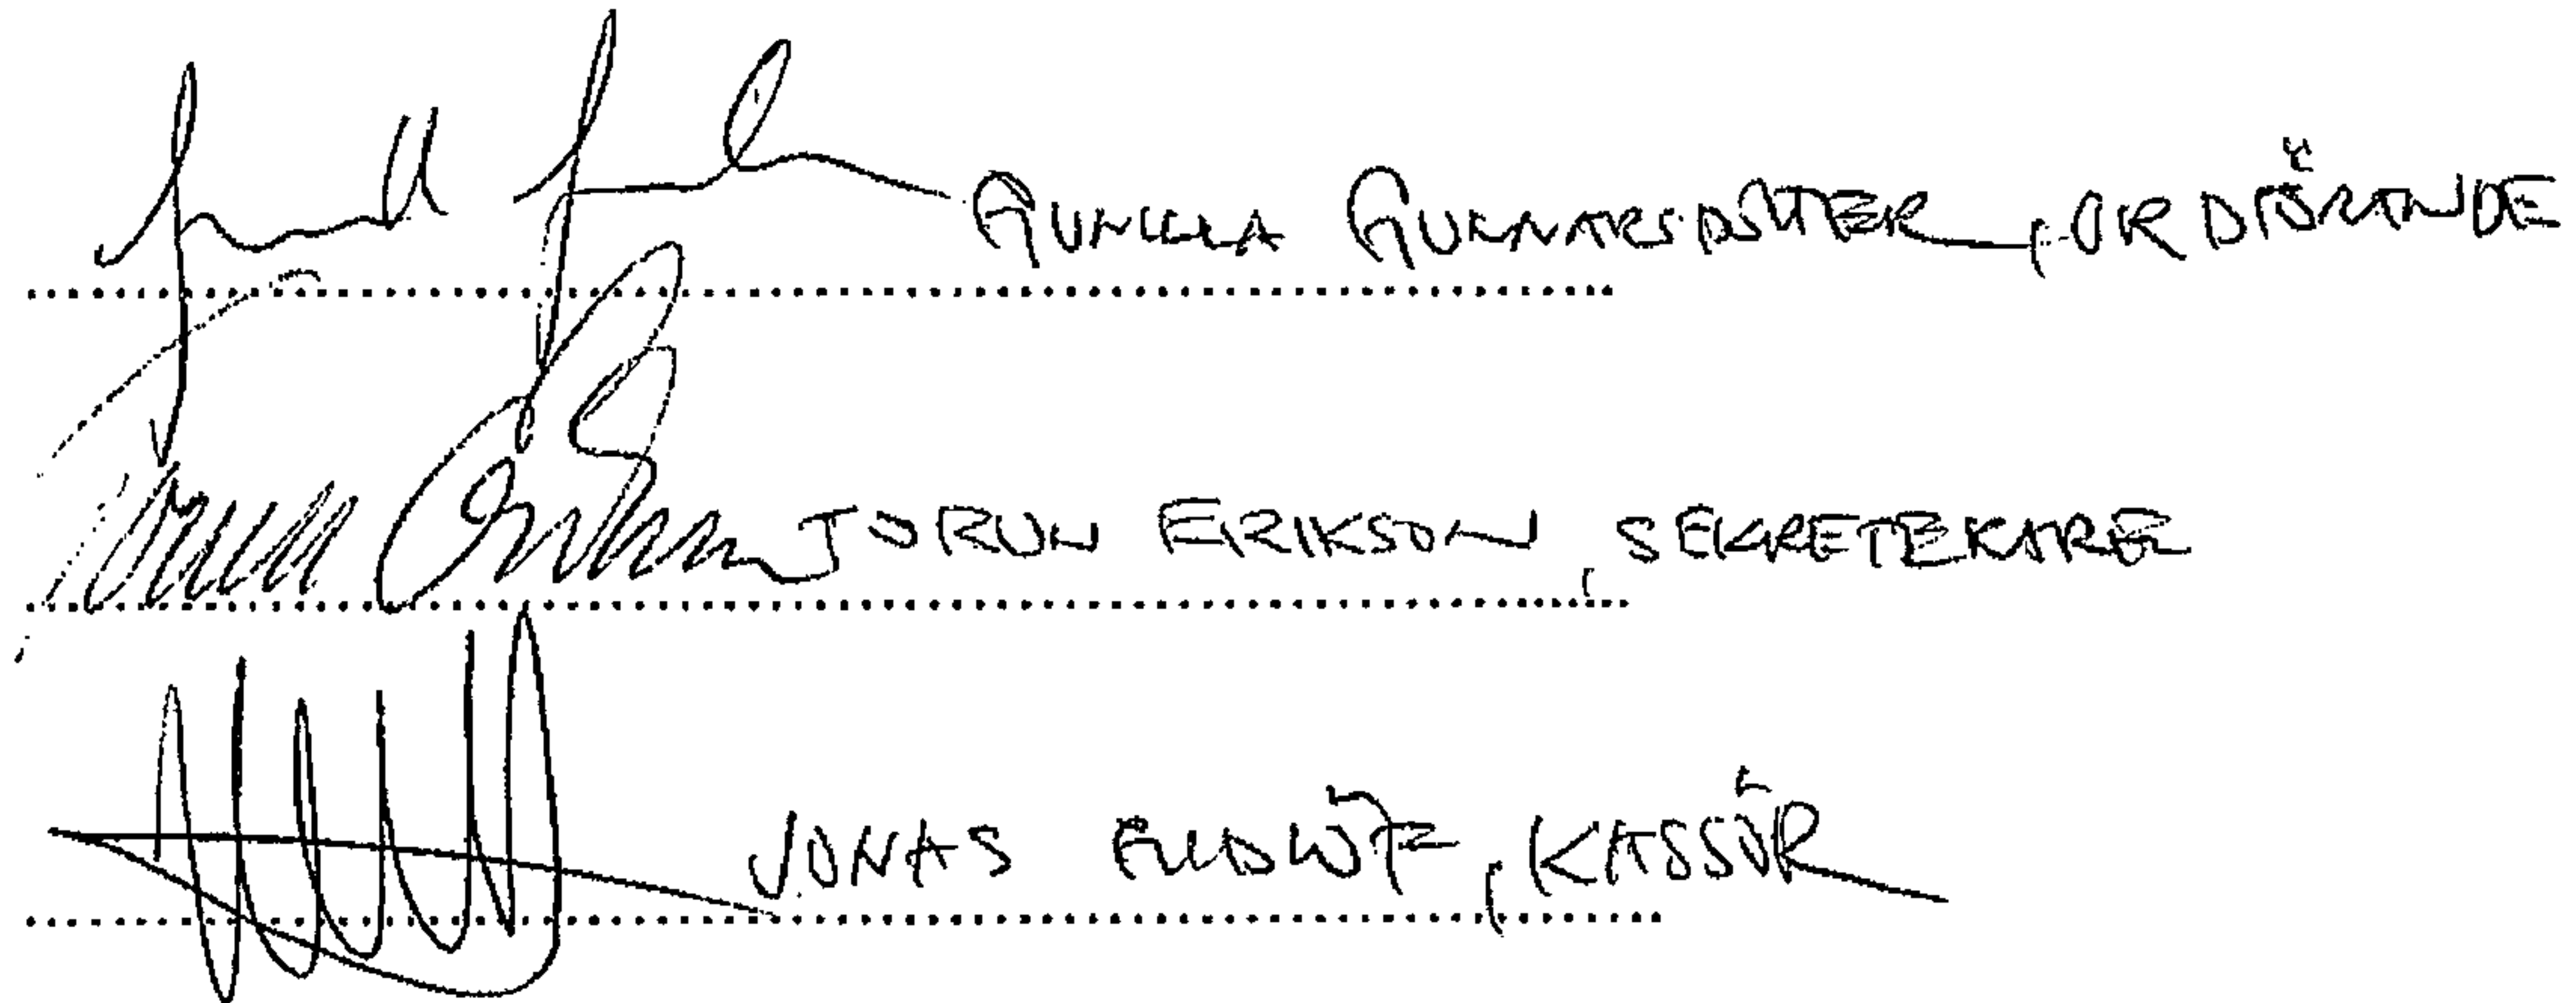 GUNILLA GUNNARSDOTTER, ORDFÖRANDE
JORUN ERIKSON, SEKRETERARE
JONAS, KASSÖR